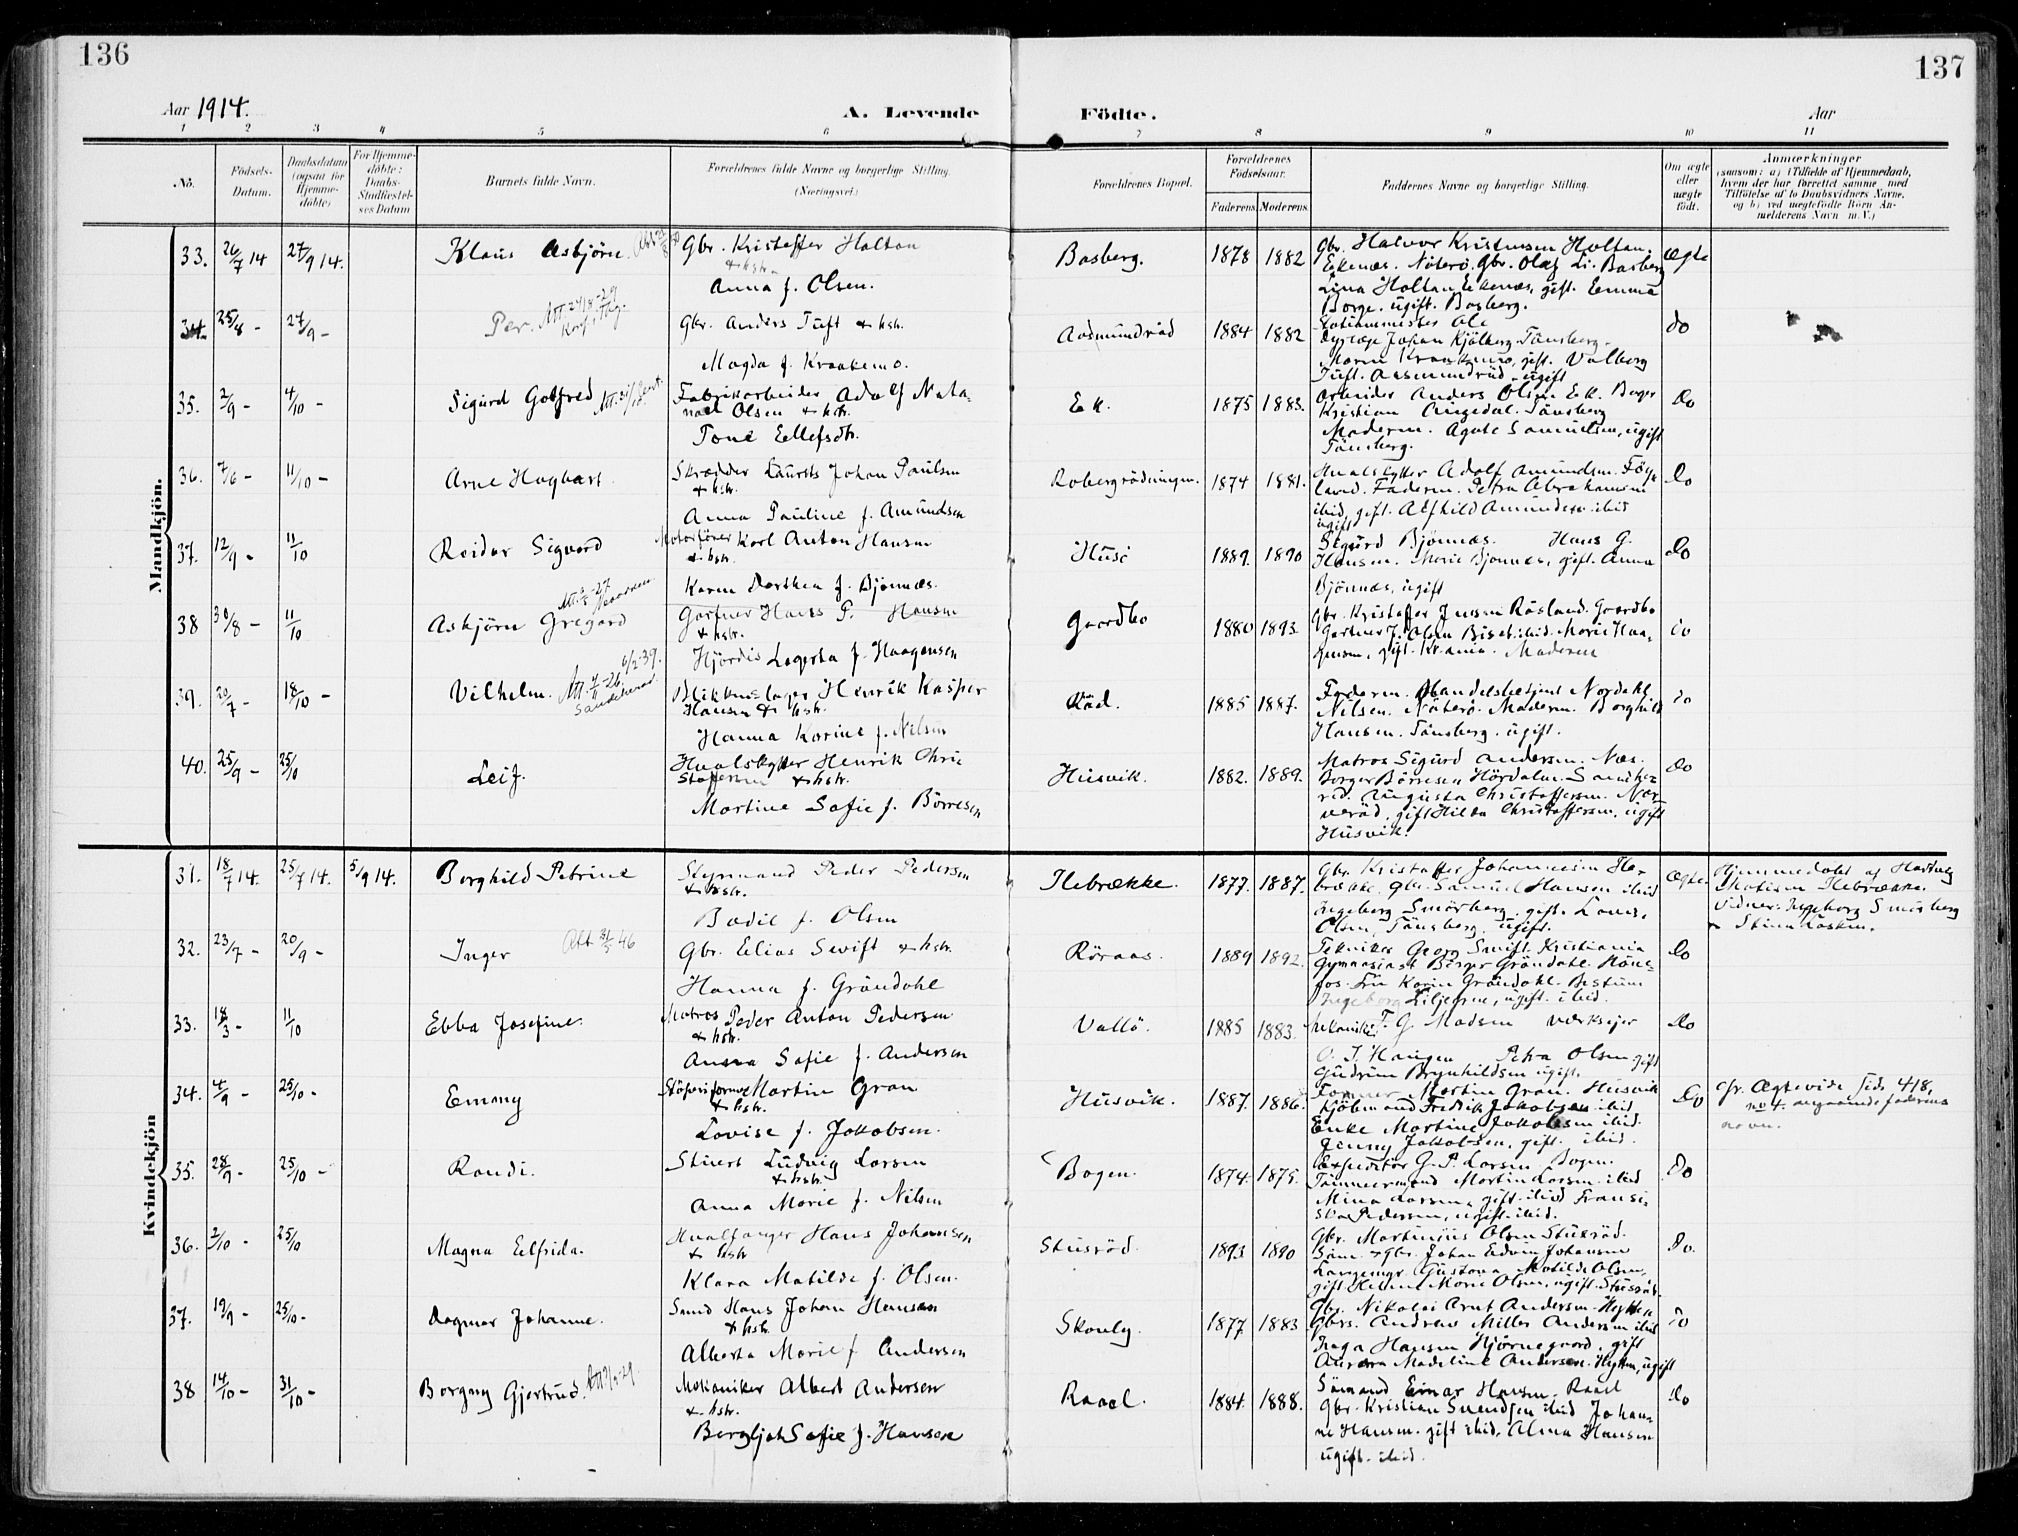 136
137
Aar 1914.
A. Levende
Födte.
Aar
1 2 3 4 5 6 7 8 9 10 11
No.
Födsels-Datum.
Daabsdatum (ogsaa for Hjemme-döbte)
For Hjemme-döbte: Daabs-Stadfæstel-ses Datum
Barnets fulde Navn.
Forældrenes fulde Navne og borgerlige Stilling. (Næringsvei)
Forældrenes Bopæl.
Forældrenes Födselsaar.
Faderens. Moderens.
Faddernes Navne og borgerlige Stilling.
Om ægte eller uægte födt.
Anmærkninger
(saasom: a) i Tilfælde af Hjemmedaab,
hvem der har forrettet samme med
Tilföielse af to Daabsvidners Navne,
og b) ved uægtefödte Börn An-
melderens Navn m. V.)
Mandkjön.
33. 26/7 14 27/9 14. Klaus Asbjörn. Gbr. Kristoffer Holtan
& hstr.
Anna f. Olsen.
Basberg. 1878 1882
Gbr. Halvor Kristensen Holtan.
Ekenæs. Nöterö. Gbr. Olaf Li. Basberg
Lina Holtan Ekenæs, gift. Emma
Borge. ugift. Basberg.
Ægte
34. 25/8 - 27/9 - Per. Gbr. Anders Tuft & hstr.
Magda f. Kraakemo.
Aasmundröd 1884 1882
Stationsmester Ole
Johan Kjölberg Tönsberg.
Maren Kraakemo, gift. Valborg
Tuft. Aasmundröd. ugift
do
35. 2/9 - 4/10 - Sigurd Gotfred Fabrikarbeider Adolf Nata-
nael Olsen & hstr.
Tone Ellefsdtr.
Ek. 1875 1883.
Arbeider Anders Olsen Ek. Bager
Kristian Aagedal. Tönsberg
Moderen. Agate Samuelsen, ugift
Tönsberg.
do
36. 7/6 - 11/10 - Arne Hagbart Skrædder Laurits Johan Paulsen
& hstr.
Anna Pauline f. Amundsen
Robergrödningen. 1874 1881.
Hvalskytter Adolf Amundsen. Föyn
land. Faderen. Petra Abrahamsen
ibid, gift. Alfhild Amundsen ibid
ugift
do
37. 12/9 - 11/10 Reidar Sigvard Motorförer Karl Anton Hansen
& hstr.
Karen Dorthea f. Bjönnæs.
Husö 1889. 1890
Sigurd Bjönnæs. Hans G.
Hansen. Marie Bjönnæs, gift. Anna
Bjönnæs, ugift
do
38 30/8 - 11/10 Asbjörn Gregard Gartner Hans P. Hansen
& hstr.
Hjördis Lagerta f. Haagensen
Gaardbo 1880 1893
Gbr. Kristoffer Jensen Rösland. Gaardbo
Gartner J. Olsen Biset ibid. Marie Haa-
gensen, gift. Kr.ania. Moderen
do
39. 20/7 - 18/10 - Vilhelm. Blikkenslager Henrik Kasper
Hansen & hstr.
Hanna Karine f. Nilsen
Röd. 1885 1887.
Faderen. Handelsbetjent Nordahl
Nilsen. Nöterö. Moderen. Borghild
Hansen. Tönsberg. ugift.
do
40. 25/9 - 25/10 Leif. Hvalskytter Henrik Chri
stoffersen & hstr.
Martine Sofie f. Börresen
Husvik. 1882. 1889.
Matros Sigurd Andersen. Næs.
Borger Börresen Hördalen. Sandhe-
red. Augusta Christoffersen. Nær-
veröd, gift Hilda Christoffersen, ugift
Husvik.
do
Kvindekjön
31. 18/7 14. 25/7 14. 5/9 14. Borghild Petrine Styrmand Peder Pedersen
& hstr.
Bodil f. Olsen
Ilebrække. 1877. 1887.
Gbr. Kristoffer Johannesen Ile-
brække, Gbr. Samuel Hansen ibid
Ingeborg Smörberg, gift. Lovise
Olsen, Tönsberg, ugift.
Ægte.
Hjemmedöbt af Hartvig
Ilebrække.
Vidner: Ingeborg Smörberg
32. 23/7 - 20/9 - Inger Gbr. Elias Swift & hstr.
Hanna f. Gröndahl
Röraas. 1889 1892.
Tekniker Georg Swift. Kristiania
Gymnasiast Birger Gröndahl. Höne-
fos. Fru Karin Gröndahl. Bestum
Ingeborg Liljegren, ugift. ibid.
do
33. 18/3 - 11/10 Ebba Josefine. Matros Peder Anton Pedersen
& hstr.
Anna Sofie f. Andersen
Vallö. 1885 1883.
Mekaniker T. G. Madsen Værkseier
O. J. Haugen Petra Olsen gift
Gudrun Brynhildsen ugift.
do
34. 4/9 - 25/10 - Emmy Störriformer Martin Gran
& hstr.
Lovise f. Jakobsen.
Husvik. 1887. 1886.
Former Martin Gran. Husvik
Kjöbmand Fredrik Jakobsen ibid
Enke Martine Jakobsen ibid.
Jenny Jakobsen, gift. ibid.
do
cfr. Ægtevide side 418,
no 4. angaaende faderens
navn.
35. 28/9 - 25/10 - Randi. Stuert Ludvig Larsen
& hstr.
Anna Marie f. Nilsen
Bogen. 1874 1875.
Expeditör G. P. Larsen Bogen.
Tömmermand Martin Larsen ibid
Mina Larsen, gift. ibid Fransi-
ska Pedersen, ugift. ibid.
do
36. 2/10 - 25/10 Magna Elfrida. Hvalfanger Hans Johansen
& hstr
Klara Matilde f. Olsen.
Stusröd. 1893 1890
Gbr. Martinius Olsen Stusröd.
Söm. & gbr. Johan Edvin Johansen
Langemyr Gustava Matilde Olsen,
gift. Marie Olsen, ugift. Stusröd.
do.
37. 19/9 - 25/10 - Dagmar Johanne. Smed Hans Johan Hansen
& hstr.
Alberta Marie f. Andersen
Skauly. 1877 1883
Gbr. Nikolai Arnt Andersen. Hytten
Gbrs. Andrew Miller Andersen ibid
Inga Hansen Hjörnegaard, gift
Aurora Madeline Andersen. Hytten, ugift
do
38 14/10 - 31/10 - Borgny Gjertrud. Mekaniker Albert Andersen
& hstr.
Bergljot Sofie f. Hansen
Raael. 1884. 1888.
Sömand Einar Hansen. Raael
Gbr. Kristian Svendsen ibid Johan-
ne Hansen. gift ibid, Alma Hansen
ugift. ibid.
do